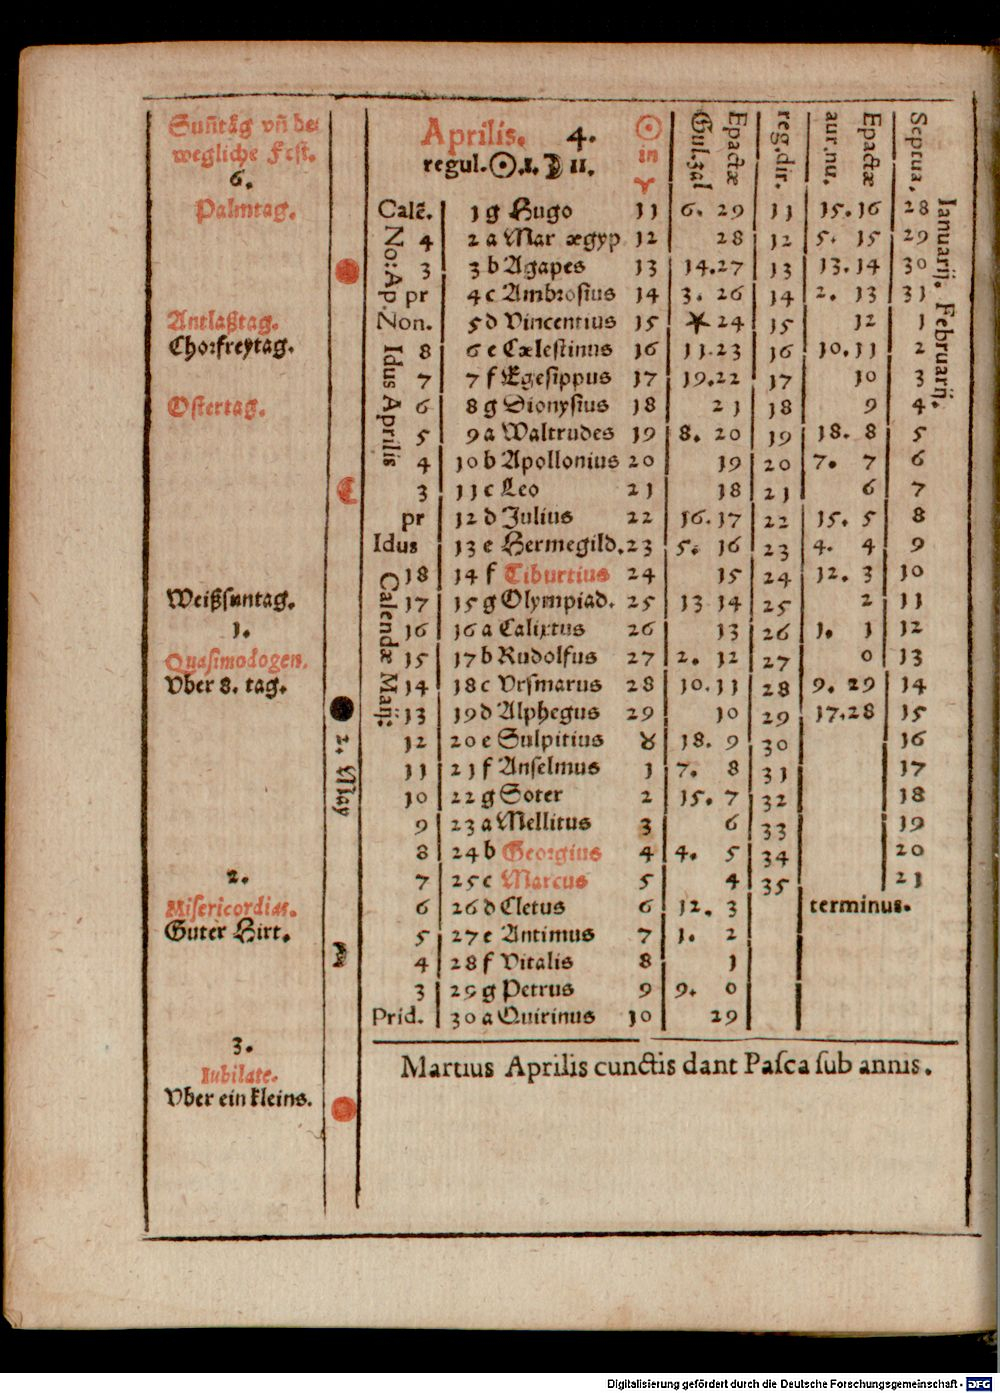 Suñtåg vñ be
wegliche Fest.
6.
Palmtag.
Antlaßtag.
Chorfreytag.
Ostertag.
Weißsuntag.
1.
Quasimodogen.
Vber 8. tag.
2.
Misericordias.
Guter Hirt.
3.
Iubilate.
Vber ein kleins.
2. May
Aprilis. 4. ☉ in ♈ Gul.zal Epactæ reg.dir. aur.nu. Epactæ Septua.
regul.☉.I.☽ II.
Calẽ. 1 g Hugo 11 6. 29 11 15.16 28
4 2 a Mar ægyp 12 28 12 5. 15 29
3 3 b Agapes 13 14.27 13 13.14 30
pr 4 c Ambrosius 14 3. 26 14 2. 13 31
Non. 5 d Vincentius 15 * 24 15 12 1
8 6 e Cælestinus 16 11.23 16 10.11 2
7 7 f Egesippus 17 19.22 17 10 3
6 8 g Dionysius 18 21 18 9 4
5 9 a Waltrudes 19 8. 20 19 18. 8 5
4 10 b Apollonius 20 19 20 7. 7 6
3 11 c Leo 21 18 21 6 7
pr 12 d Julius 22 16.17 22 15. 5 8
Idus 13 e Hermegild. 23 5. 16 23 4. 4 9
18 14 f Tiburtius 24 15 24 12. 3 10
17 15 g Olympiad. 25 13 14 25 2 11
16 16 a Calixtus 26 13 26 1. 1 12
15 17 b Rudolfus 27 2. 12 27 0 13
14 18 c Vrsmarus 28 10.11 28 9. 29 14
13 19 d Alphegus 29 10 29 17.28 15
12 20 e Sulpitius ♉ 18. 9 30 16
11 21 f Anselmus 1 7. 8 31 17
10 22 g Soter 2 15. 7 32 18
9 23 a Mellitus 3 6 33 19
8 24 b Georgius 4 4. 5 34 20
7 25 c Marcus 5 4 35 21
6 26 d Cletus 6 12. 3 terminus.
5 27 e Antimus 7 1. 2
4 28 f Vitalis 8 1
3 29 g Petrus 9 9. 0
Prid. 30 a Quirinus 10 29
No: Ap.
Idus Aprilis
Calendæ Maij:
Ianuarij. Februarij.
Martius Aprilis cunctis dant Pasca sub annis.
Digitalisierung gefördert durch die Deutsche Forschungsgemeinschaft - DFG